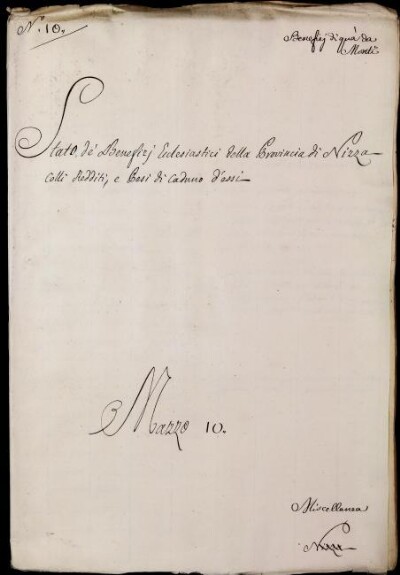 N. 10.
Benefizj di quà da
Monti
Stato, de' Benefizj Ecclesiastici della Provincia di Nizza
colli Redditi, e Pesi di caduno d'essi
Mazzo 10.
Miscellanea